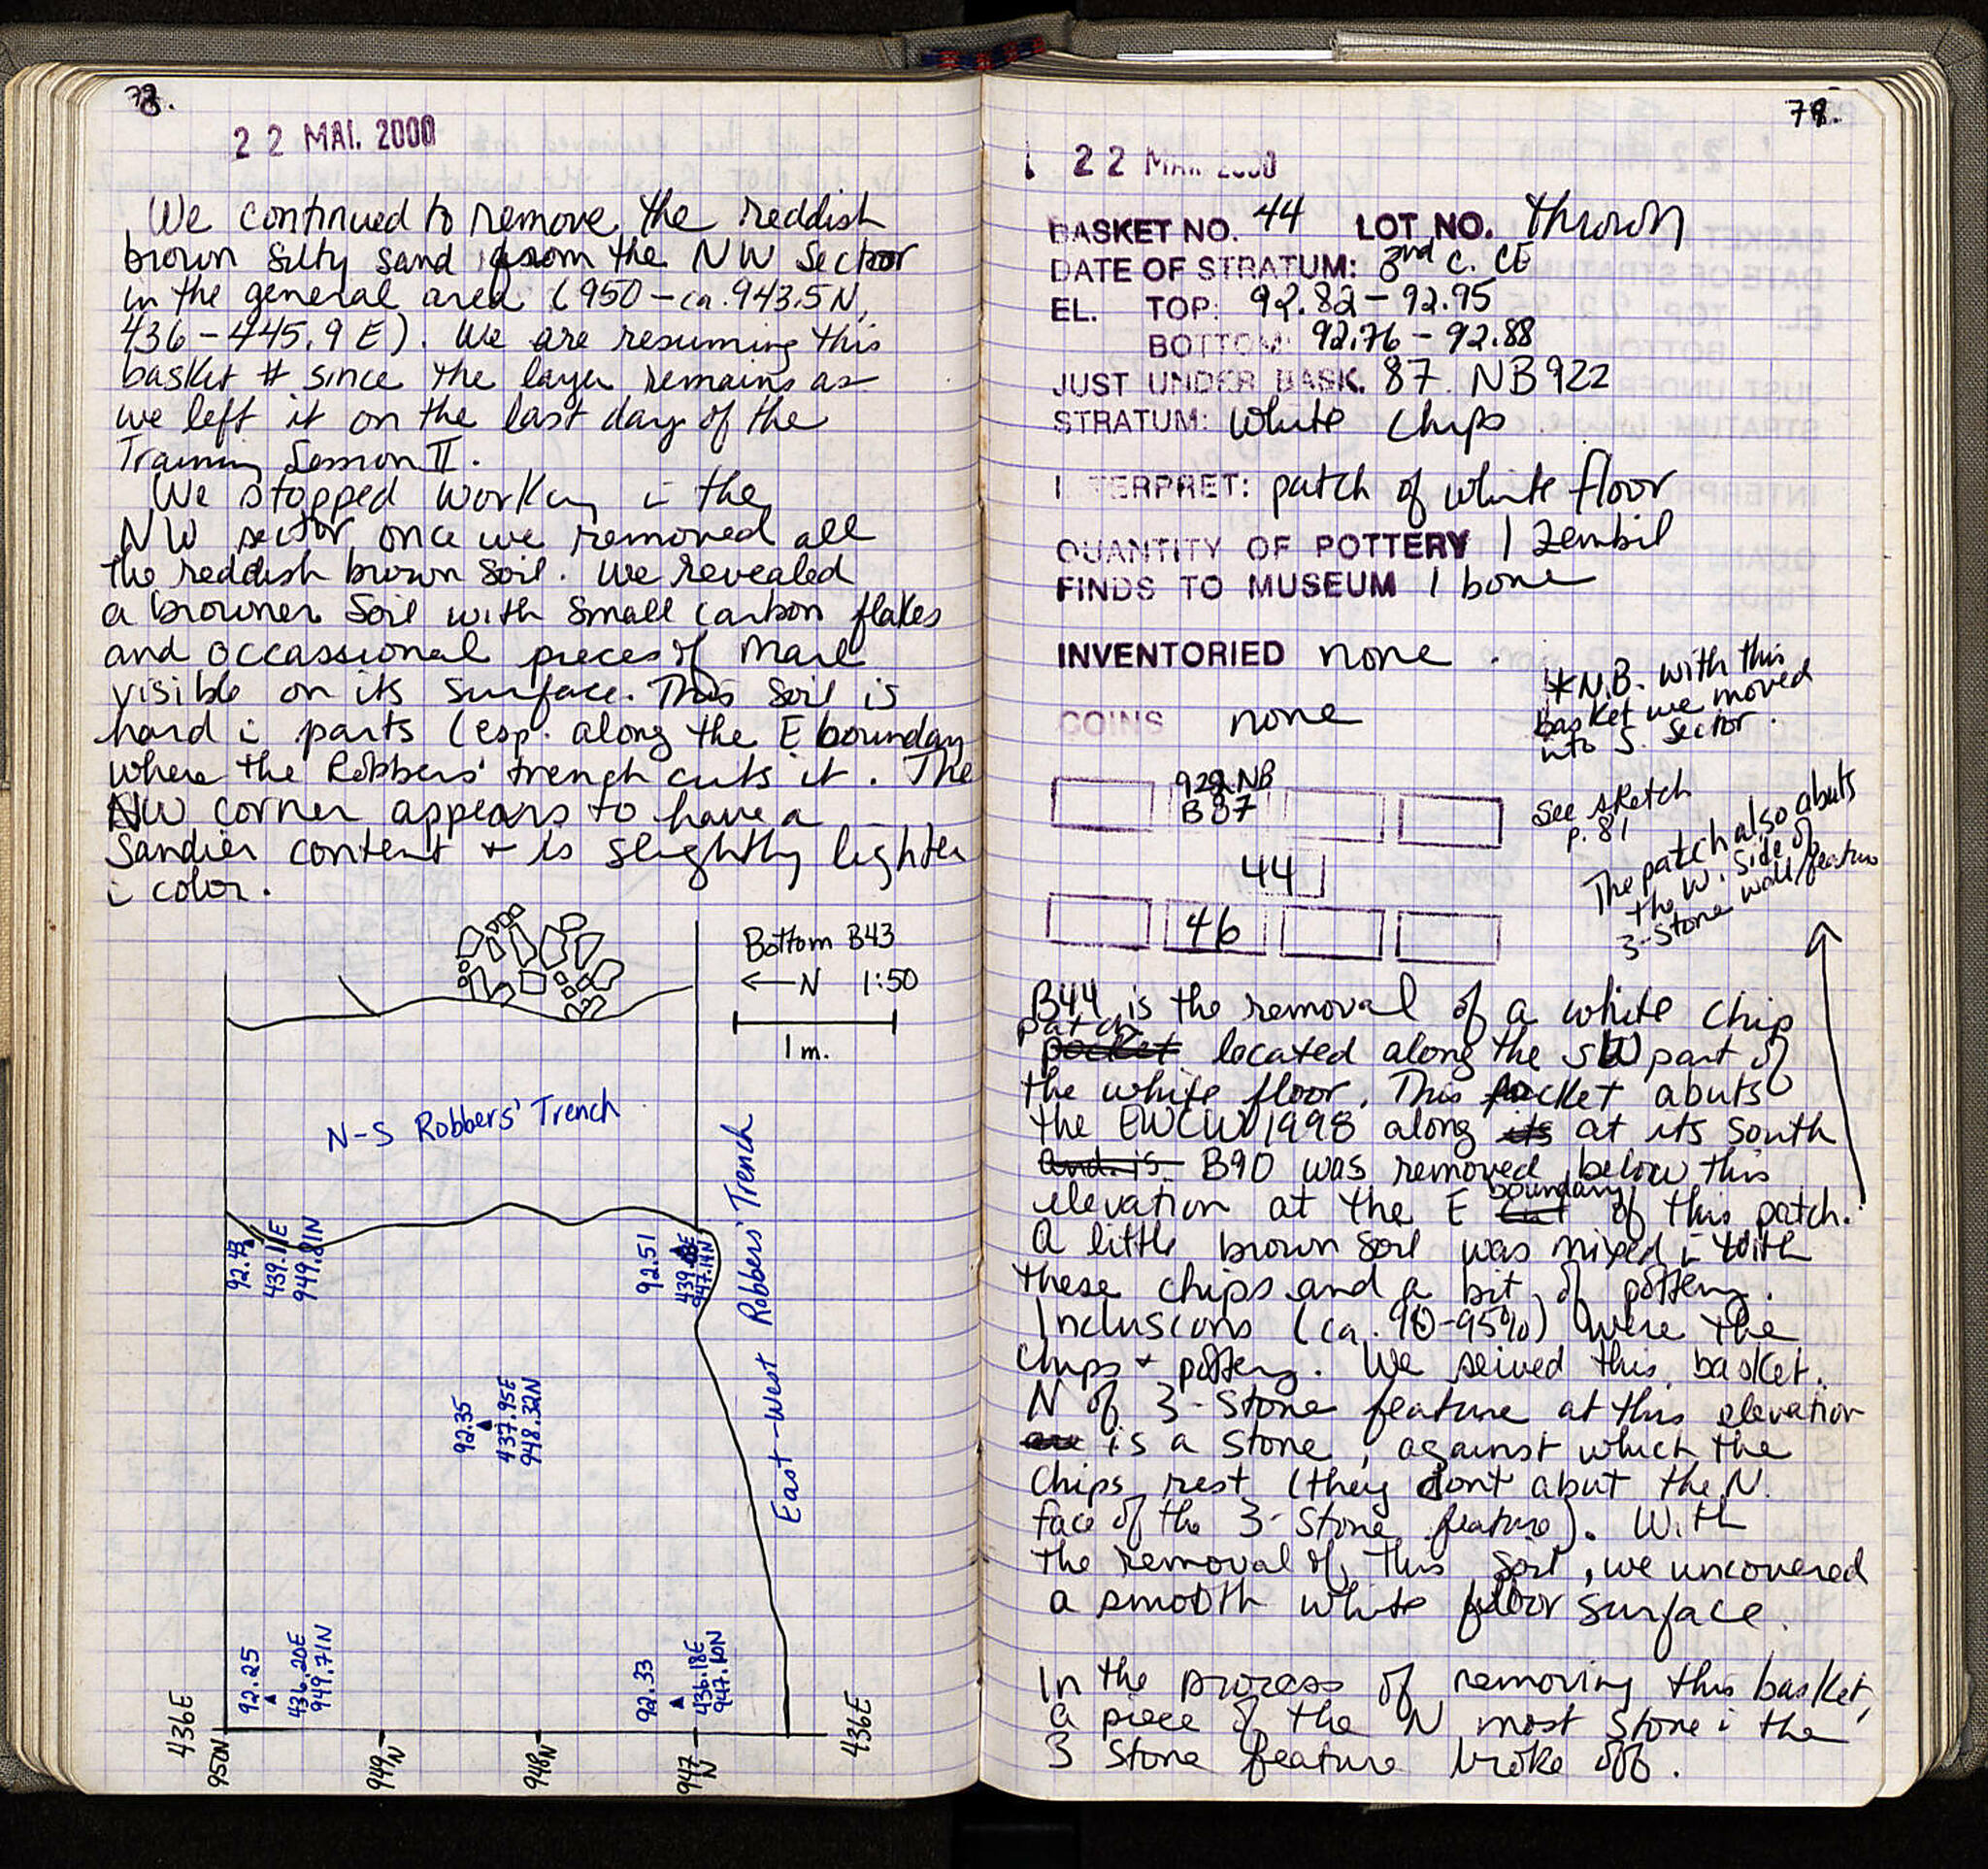 22 MAI. 2000
We continued to remove the reddish
brown silty sand from the NW Sector
in the general area (950 - ca. 943.5 N,
436 - 445.9 E). We are resuming this
basket # since the layer remains as
we left it on the last day of the
Training Session II.
We stopped working i the
NW sector once we removed all
the reddish brown soil. We revealed
a browner soil with small carbon flakes
and occassional pieces of marl
visible on its surface. This soil is
hard i parts (esp. along the E boundary
where the Robbers' trench cuts it. The
NW corner appears to have a
sandier content + is slightly lighter
i color.
Bottom B43
← N 1:50
1 m.
N-S Robbers' Trench
East-West Robbers' Trench
92.43
439.11E
949.81N
92.51
947.14N
92.35
437.95E
948.32N
92.25
436.20E
949.71N
92.33
436.18E
947.10N
436E
436E
950N
949N
948N
947N
79.
22 MAI. 2000
BASKET NO. 44 LOT NO. thrown
DATE OF STRATUM: C. CE
EL. TOP: 92.82 - 92.95
BOTTOM: 92.76 - 92.88
JUST UNDER BASK. 87 NB922
STRATUM: white chips
INTERPRET: patch of white floor
QUANTITY OF POTTERY 1 zembil
FINDS TO MUSEUM 1 bone
INVENTORIED none
*N.B. with this
basket we moved
into S. Sector.
COINS none
922 NB
B87
44
46
See sketch
p. 81
The patch also abuts
the W. side of
3-stone wall/feature
B44 is the removal of a white chip
patch
pocket located along the SW part of
the white floor. This packet abuts
the EWCW 1998 along its at its south
and is B90 was removed below this
boundary
elevation at the E cut of this patch.
A little brown soil was mixed i with
these chips and a bit of pottery.
Inclusions (ca. 90-95%) were the
chips + pottery. We seived this basket.
N of 3-stone feature at this elevation
are is a stone, against which the
chips rest (they dont abut the N.
face of the 3-stone feature). With
the removal of this soil, we uncovered
a smooth white floor surface.
In the process of removing this basket,
a piece of the N most stone i the
3 stone feature broke off.